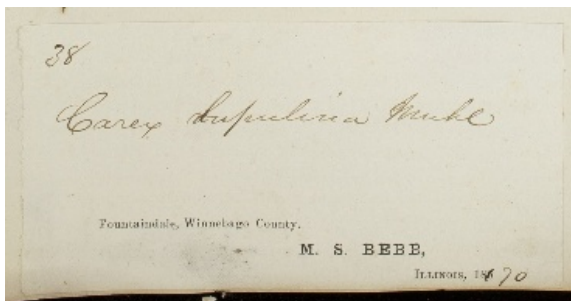 38
Carex lupulina Muhl
Fountaindale, Winnebago County.
M. S. BEBB,
ILLINOIS, 1870